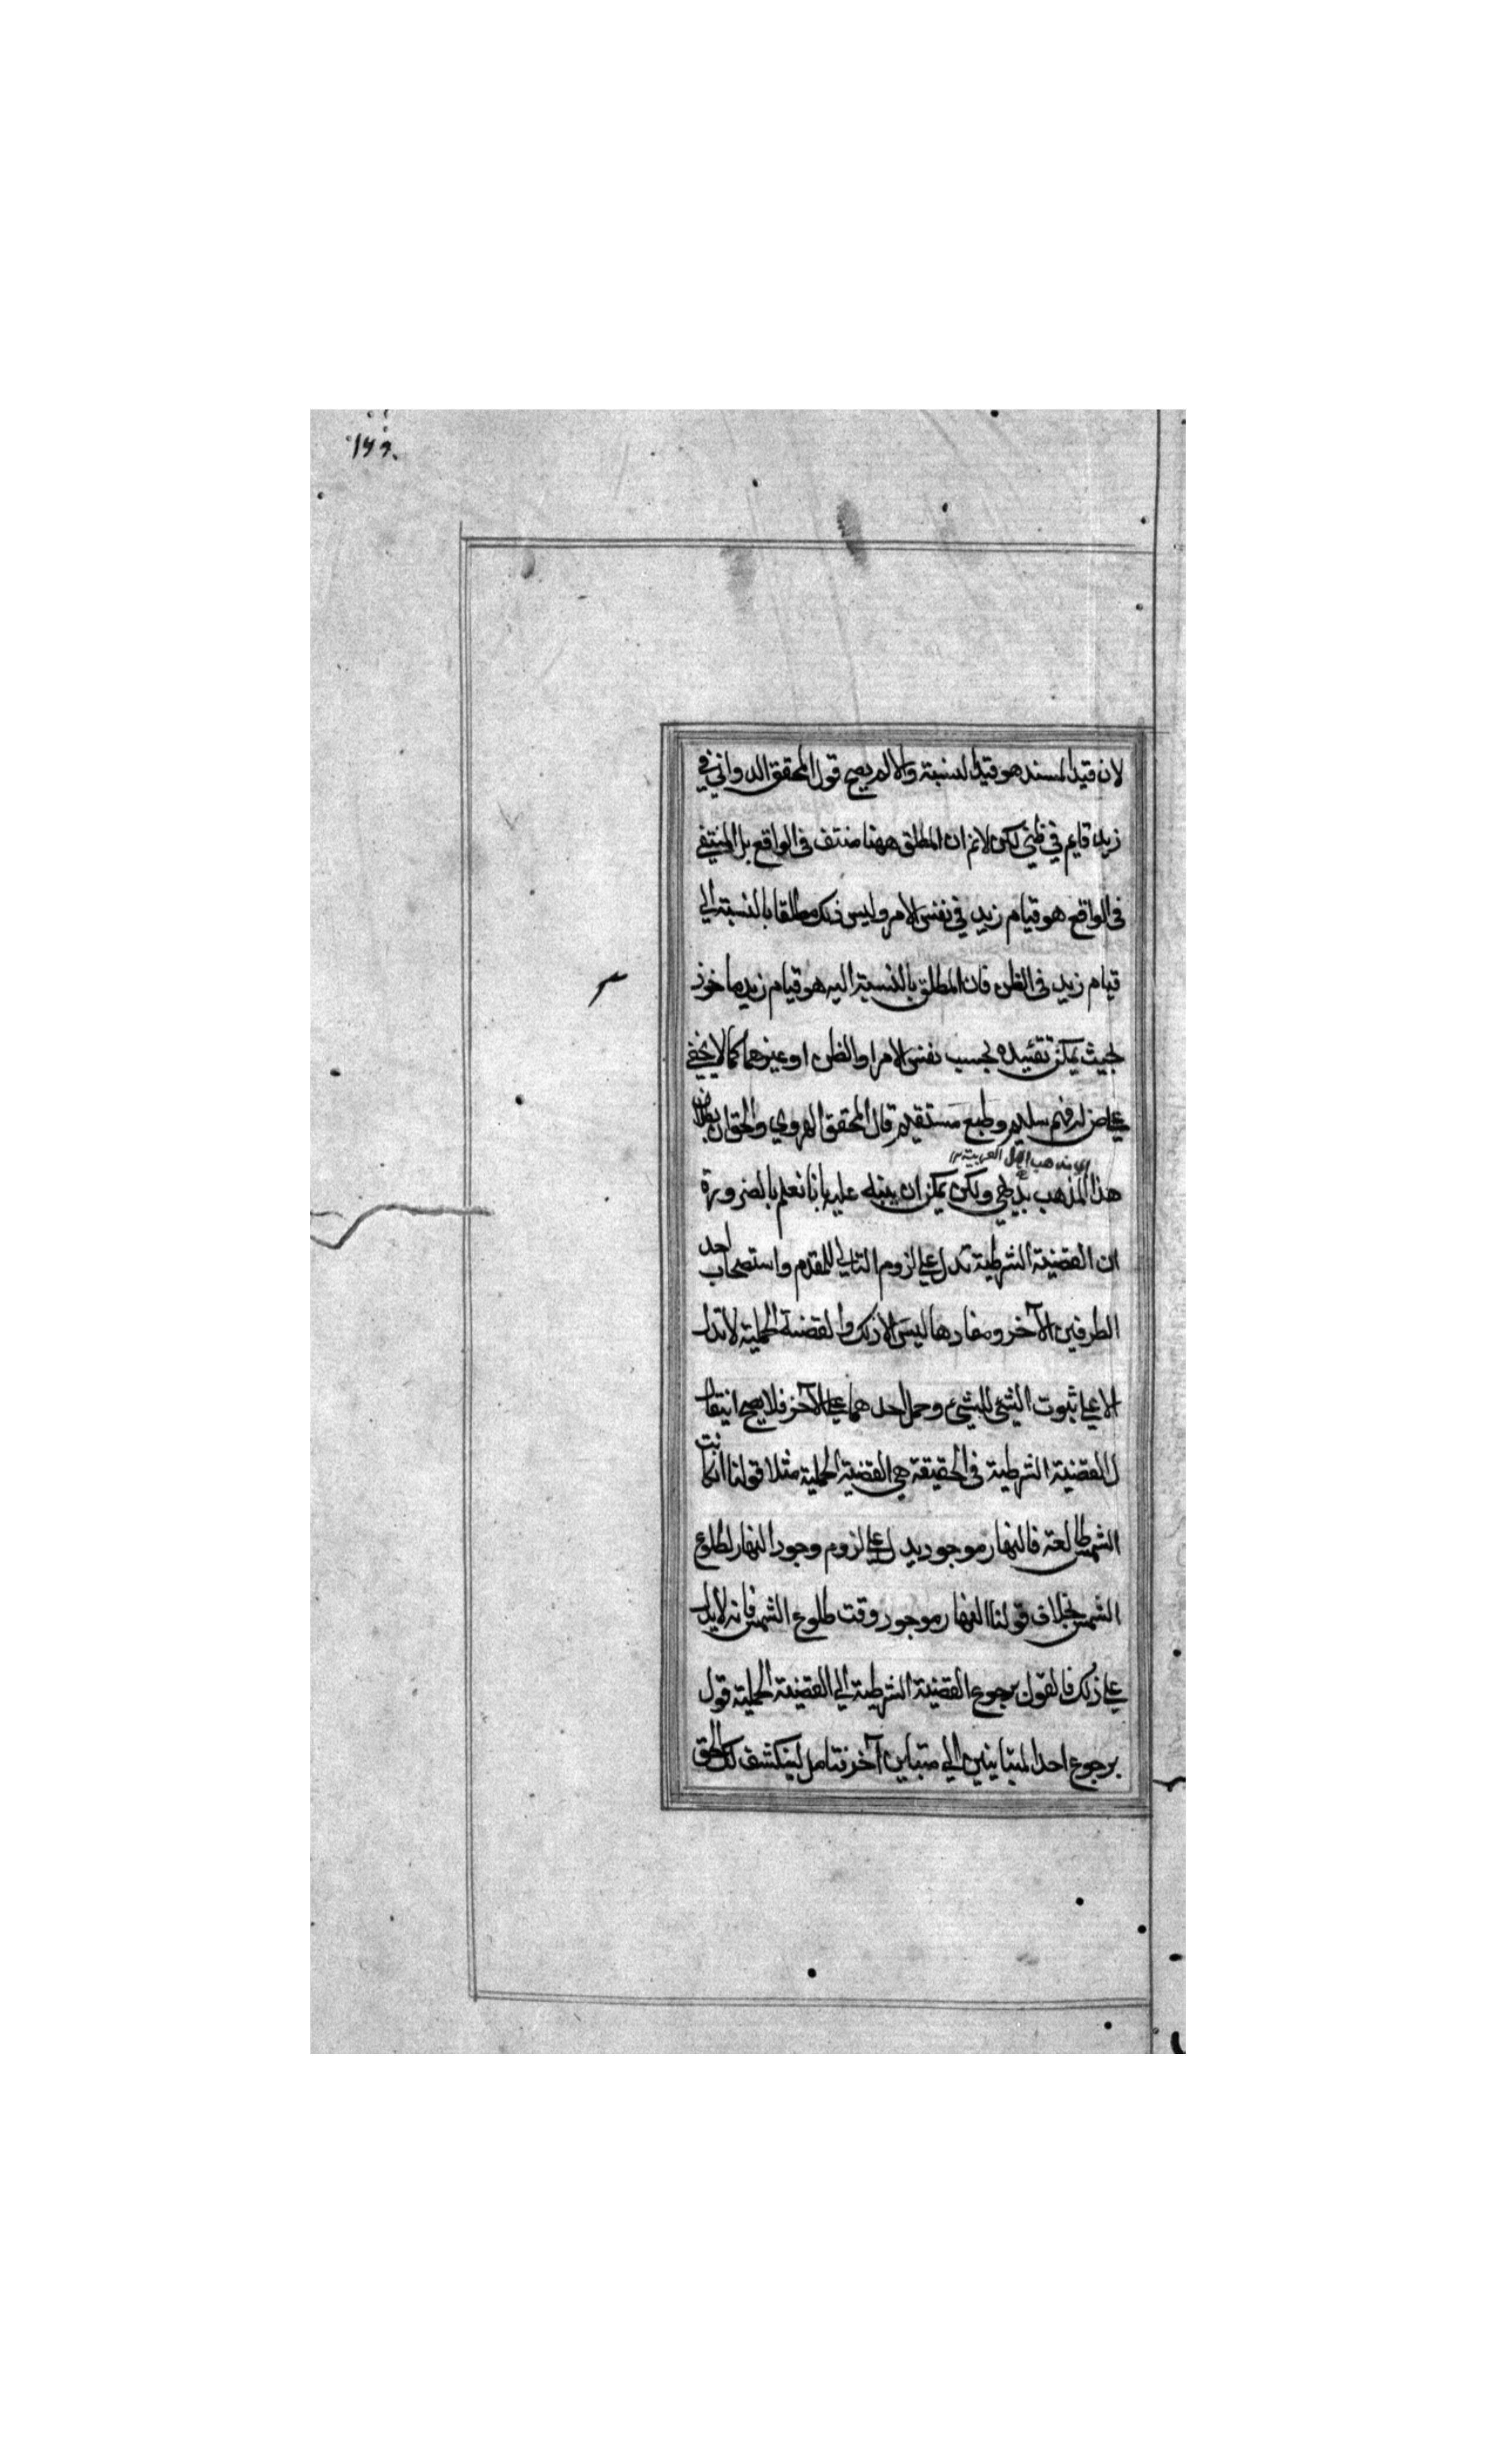 ۱۶۶
لان قيد المسند هو قيد النسبة والا لم يصح قول المحقق الدواني في
زيد قايم في ظني لكن لانم ان المطلق ههنا منتف في الواقع بل المنتفي
في الواقع هو قيام زيد في نفس الامر وليس ذلك مطلقا بالنسبة الي
قيام زيد في الظن فان المطلق بالنسبة اليه هو قيام زيد ماخوذ
بحيث يمكن تقئيده بحسب نفس الامر او الظن او غيرهما كما لا يخفي
علي من له فهم سليم وطبع مستقيم قال المحقق الهروي والحق ان بطلان
اي مذهب اهل العربية
هذا المذهب بديهي ولكن يمكن ان ينبه عليه بانا نعلم بالضرورة
ان القضية الشرطية تدل علي لزوم التالي للمقدم واستصحاب احد
الطرفين الآخر ومفادها ليس الا ذلك والقضية الحملية لا تدل
الا علي ثبوت الشئ للشئ وحمل احدهما علي الآخر فلا يصح ان يقال
ل القضية الشرطية في الحقيقة هي القضية الحملية مثلا قولنا ان كانت
الشمس طالعة فالنهار موجود يدل علي لزوم وجود النهار لطلوع
الشمس بخلاف قولنا النهار موجود وقت طلوع الشمس فانه لا يدل
علي ذلك فالقول برجوع القضية الشرطية الي القضية الحملية قول
برجوع احد المتباينين الي متباين آخر فتامل لينكشف لك الحق